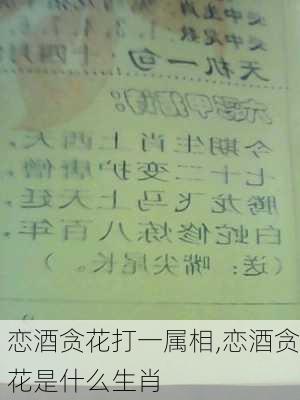 天机一句
今期生肖上西天,
七十二变护唐僧,
腾龙飞马上天廷,
白蛇修炼八百年,
(送:嘴尖尾长。)
恋酒贪花打一属相,恋酒贪
花是什么生肖